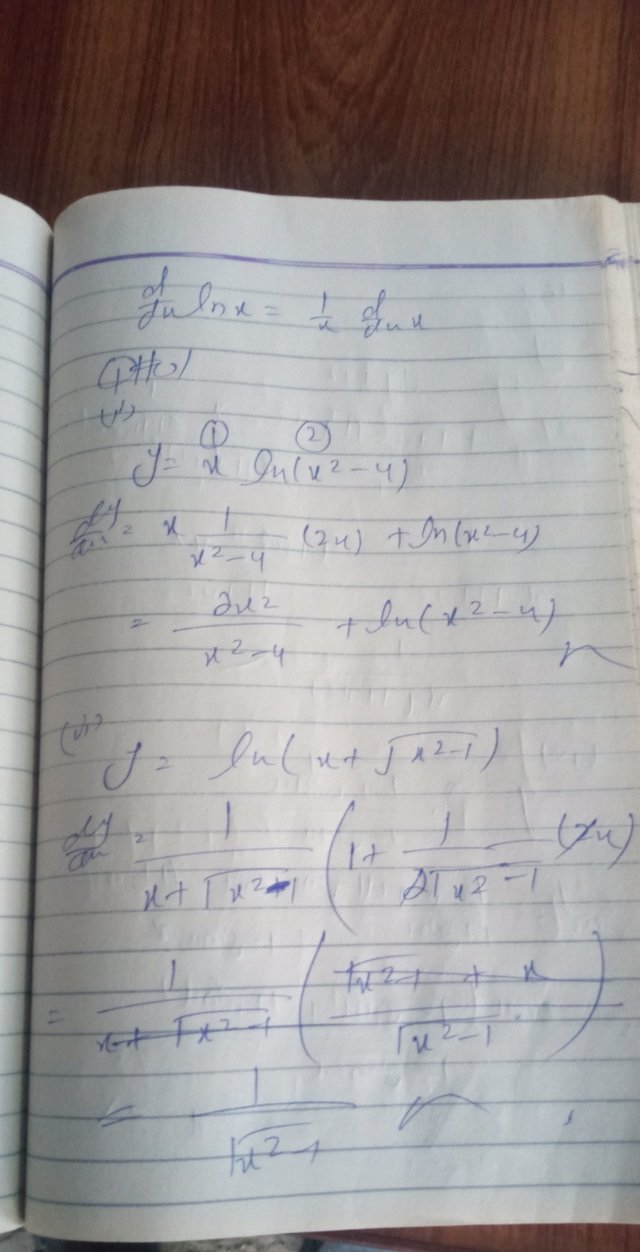 d/dx ln x = 1/x d/dx x
① ②
y = x ln(x² - 4)
dy/dx = x 1/(x² - 4) (2x) + ln(x² - 4)
= 2x²/(x² - 4) + ln(x² - 4)
y = ln(x + √(x² - 1))
dy/dx = 1/(x + √(x² - 1)) (1 + 1/(2√(x² - 1)) (2x)
= 1/(x + √(x² - 1)) ((√(x² - 1) + x)/√(x² - 1))
= 1/√(x² - 1)